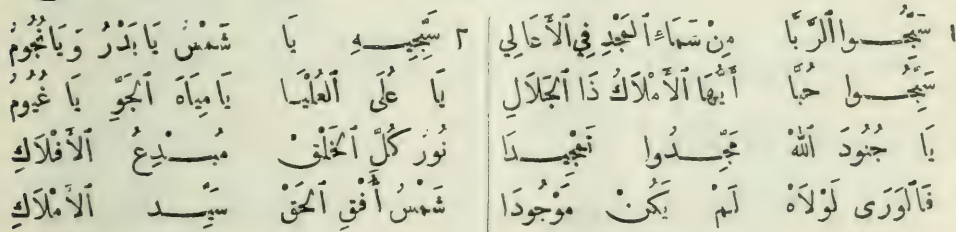 ١ سَبِّحُوا ٱلرَّبَّا مِنْ سَمَاءِ ٱلْمَجْدِ فِي ٱلْأَعَالِي
سَبِّحُوا حُبًّا أَيُّهَا ٱلْأَمْلَاكُ ذَا ٱلْجَلَالِ
يَا جُنُودَ ٱللّٰهْ مَجِّدُوا تَمْجِيدَا
فَٱلْوَرَى لَوْلَاهْ لَمْ يَكُنْ مَوْجُودَا
٢ سَبِّحِيهِ يَا شَمْسُ يَا بَدْرُ وَيَا نُجُومُ
يَا عُلَى ٱلْعُلْيَا يَا مِيَاهَ ٱلْجَوِّ يَا غُيُومُ
نُورُ كُلِّ ٱلْخَلْقْ مُبْدِعُ ٱلْأَفْلَاكِ
شَمْسُ أُفْقِ ٱلْحَقْ سَيِّدُ ٱلْأَمْلَاكِ